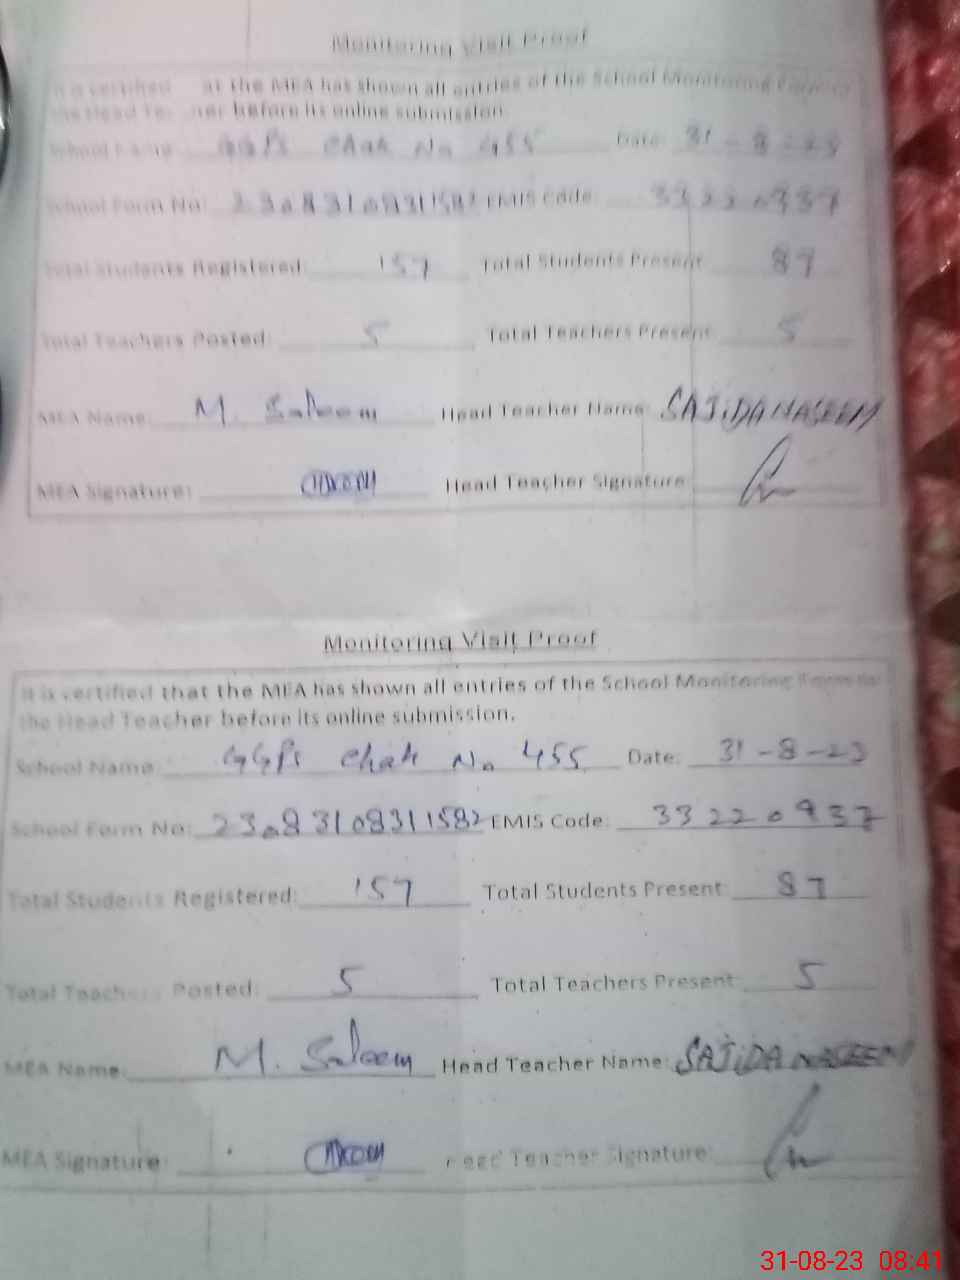 Monitoring Visit Proof
It is certified at the MEA has shown all entries of the School Monitoring Form to
the Head her before its online submission.
School Name: GGPS Chak No 455 Date: 31-8-23
School Form No: 23083108311582 EMIS Code: 33220937
Total Students Registered: 157 Total Students Present: 87
Total Teachers Posted: 5 Total Teachers Present: 5
MEA Name: M. Saleem Head Teacher Name: SAJiDA NASEEM
MEA Signature: Head Teacher Signature:
Monitoring Visit Proof
It is certified that the MEA has shown all entries of the School Monitoring Form to
the Head Teacher before its online submission.
School Name: GGPS Chak No 455 Date: 31-8-23
School Form No: 23083108311582 EMIS Code: 33220937
Total Students Registered: 157 Total Students Present: 87
Total Teachers Posted: 5 Total Teachers Present: 5
MEA Name: M. Saleem Head Teacher Name: SAJiDA NASEEM
MEA Signature: Head Teacher Signature:
31-08-23 08:41